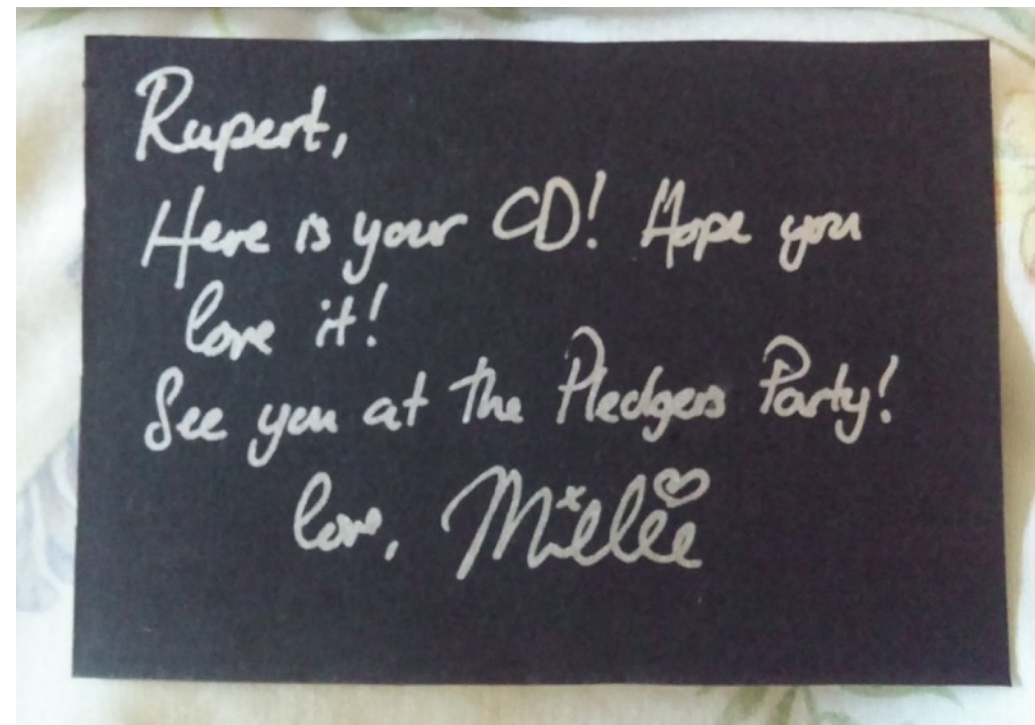 Rupert,
Here is your CD! Hope you
love it!
See you at the Pledgers Party!
love, Millie